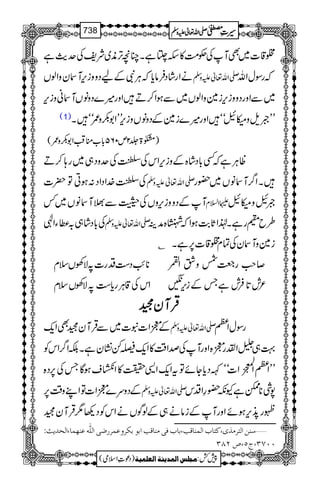 سیرتِ مصطفیٰ صلی اللہ تعالیٰ علیہ وسلم 738
مخلوقات میں بھی آپ کی حکومت کا سکہ چلتا ہے۔ چنانچہ ترمذی شریف کی حدیث ہے
کہ رسول اللہ صلی اللہ تعالیٰ علیہ وسلم نے ارشاد فرمایا کہ ہر نبی کے لیے دو وزیر آسمان والوں
میں سے اور دو وزیر زمین والوں میں سے ہوا کرتے ہیں اور میرے دونوں آسمانی وزیر
’’جبریل و میکائیل‘‘ ہیں اور میرے زمین کے دونوں وزیر ’’ابوبکر و عمر‘‘ ہیں۔ (1)
(مشکوٰۃ جلد ۲ ص ۵۶۰ باب مناقب ابوبکر و عمر)
ظاہر ہے کہ کسی بادشاہ کے وزیر اس کی سلطنت کی حدود ہی میں رہا کرتے
ہیں۔ اگر آسمانوں میں حضور صلی اللہ تعالیٰ علیہ وسلم کی سلطنت خداداد نہ ہوتی تو حضرت
جبریل و میکائیل علیہما السلام آپ کے وزیروں کی حیثیت سے بھلا آسمانوں میں کس
طرح مقیم رہتے۔ لہٰذا ثابت ہوا کہ شہنشاہ مدینہ صلی اللہ تعالیٰ علیہ وسلم کی بادشاہی بہ عطاء الٰہی
زمین و آسمان کی تمام مخلوقات پر ہے۔
صاحب رجعت شمس و شق القمر نائب دست قدرت پہ لاکھوں سلام
عرش تا فرش ہے جس کے زیر نگیں اس کی قاہر ریاست پہ لاکھوں سلام
قرآن مجید
رسول اعظم صلی اللہ تعالیٰ علیہ وسلم کے معجزات نبوت میں سے قرآن مجید بھی ایک
بہت ہی جلیل القدر معجزہ اور آپ کی صداقت کا ایک فیصلہ کن نشان ہے۔ بلکہ اگر اس کو
’’اعظم المعجزات‘‘ کہہ دیا جائے تو یہ ایک ایسی حقیقت کا انکشاف ہوگا جس کی پردہ
پوشی ناممکن ہے کیونکہ حضور اقدس صلی اللہ تعالیٰ علیہ وسلم کے دوسرے معجزات تو اپنے وقت پر
ظہور پذیر ہوئے اور آپ کے زمانے ہی کے لوگوں نے اس کو دیکھا مگر قرآن مجید
......سنن الترمذی،کتاب المناقب،باب فی مناقب ابی بکر وعمر رضی اللّٰہ عنھما،الحدیث:
۳۷۰۰،ج۵،ص۳۸۲
پیش کش: مجلس المدینۃ العلمیۃ (دعوت اسلامی)